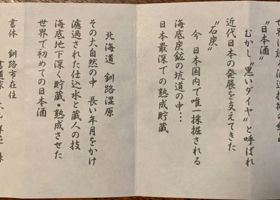 "日本酒"
むかし"黒いダイヤ"と呼ばれ
近代日本の発展を支えてきた
"石炭"
今 日本国内で唯一採掘される
海底炭鉱の坑道の中…
日本最深での熟成貯蔵
北海道 釧路湿原
その大自然の中 長い年月をかけ
濾過された仕込水と蔵人の技
海底地下深く貯蔵・熟成させた
世界で初めての日本酒
書体 釧路市在住